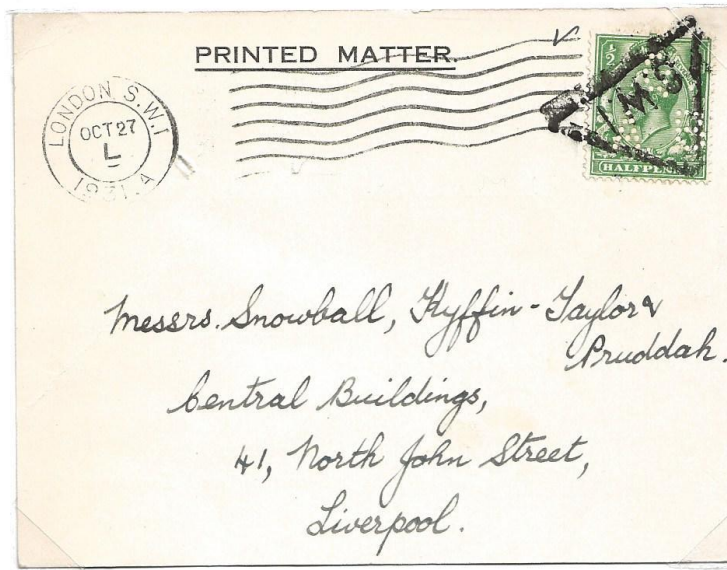 PRINTED MATTER.
LONDON S.W.1
OCT 27
L
1931. A
½
S.W.1
HALFPENNY
Messrs. Snowball, Kyffin-Taylor &
Pruddah.
Central Buildings,
41, North John Street,
Liverpool.